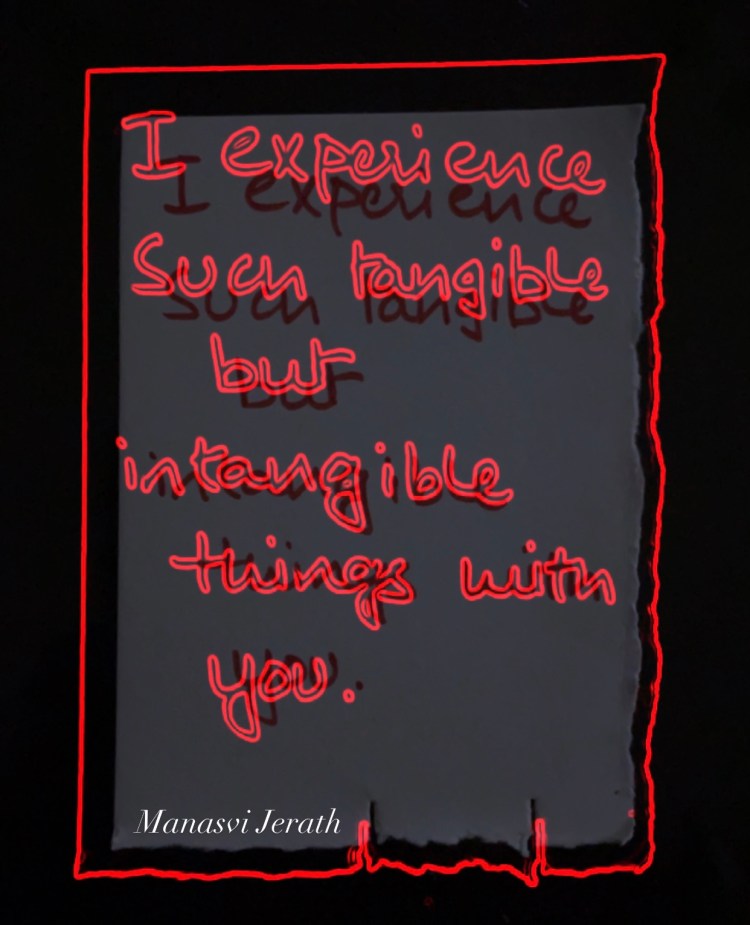 I experience
Such tangible
but
intangible
things with
you.
Manasvi Jerath